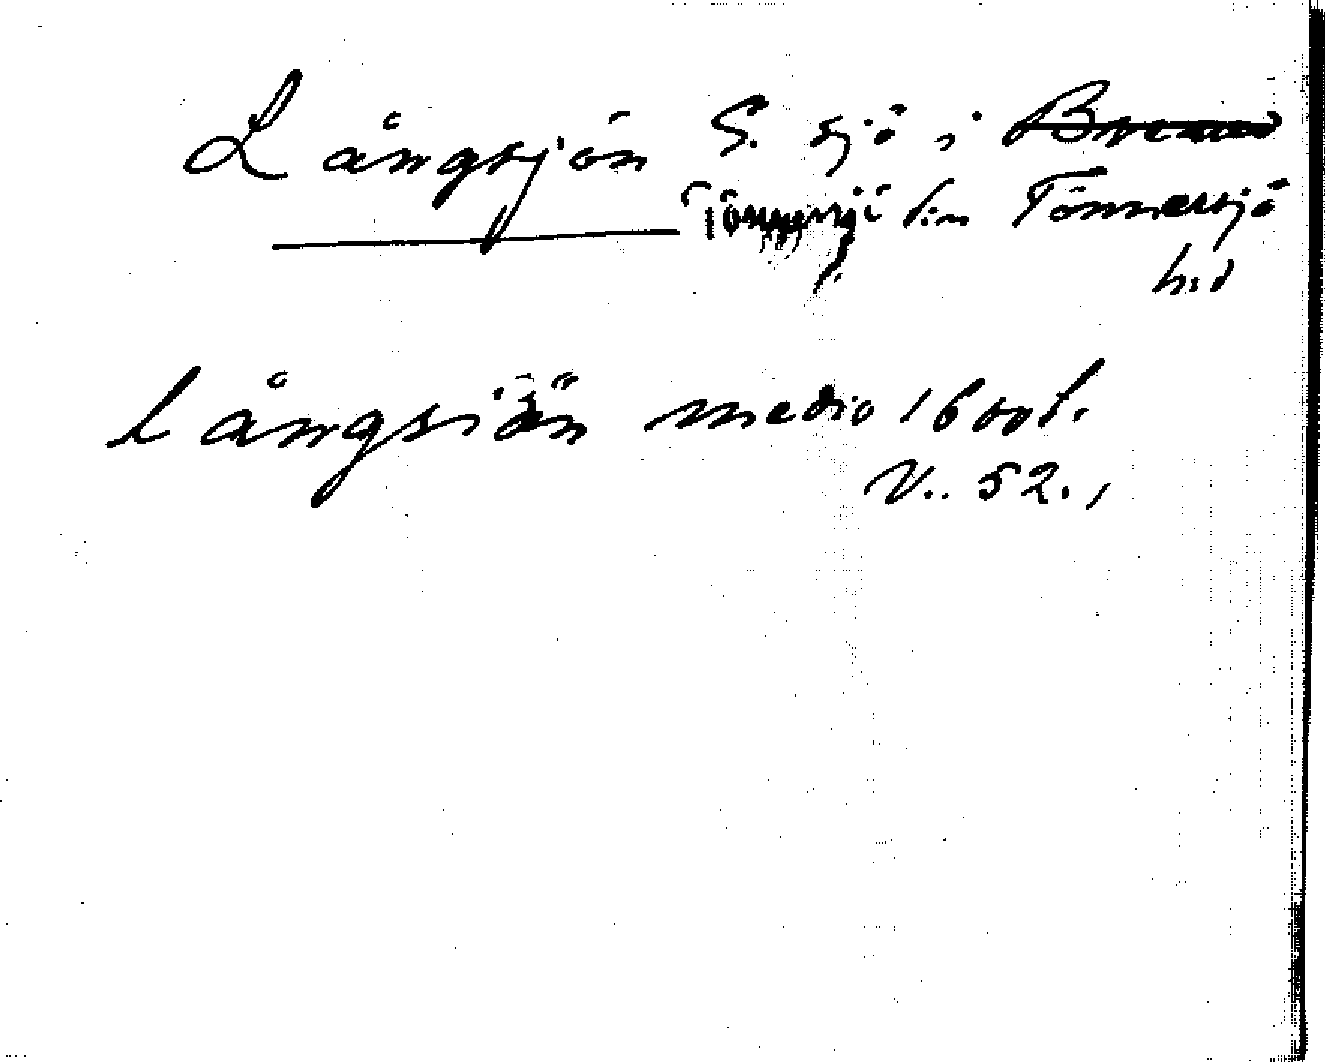 Långsjön S. sjö i
Tönnersjö sn Tönnersjö
hd
Långsiön medio 1600 t.
V.. 52.,